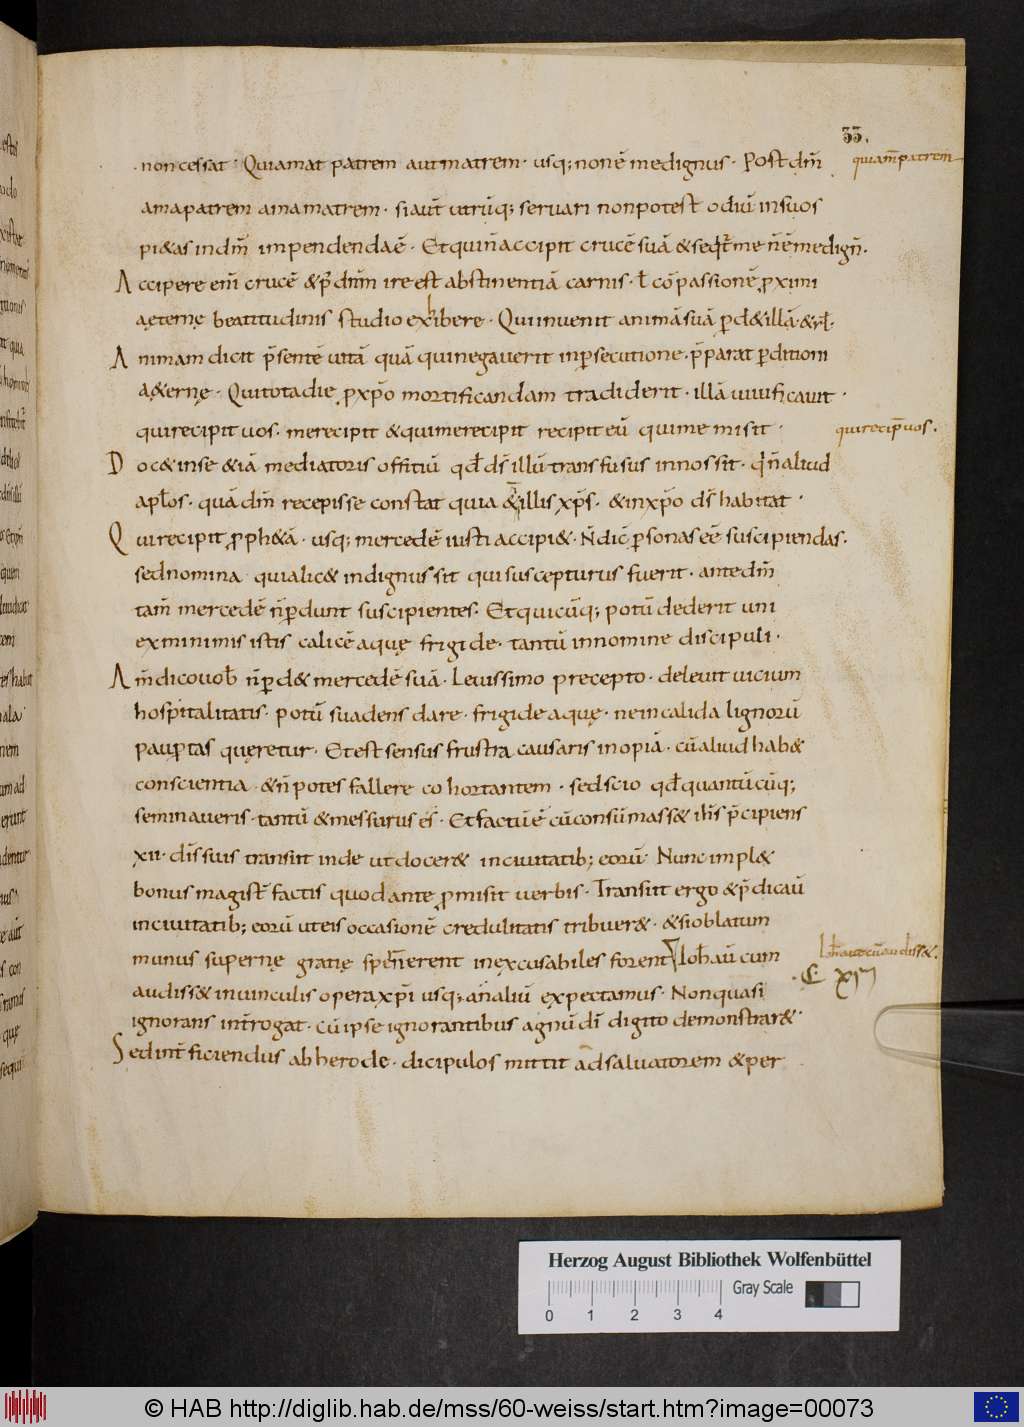 33.
non cessat· Qui amat patrem aut matrem· usq; non ē me dignus· Post dm̄
quiam̄ patrem
ama patrem ama matrem· si aut̄ utrūq; servari non potest odiū in suos
pi&as in dm̄ impendenda ē· Et qui n̄ accipit crucē suā & seq̄t me n̄ ē me dign̄·
Accipere eni crucē & p̄ dn̄m ire est abstinentiā carnis· ł cōpassionē proximi
aeternę beatitudinis studio exhibere· Qui invenit animā suā p̄d& illā· & rł·
Animam dicit p̄sentē vitā quā qui negaverit in persecutione· p̄parat perditioni
a&ernę· Qui tota die pro xp̄o mortificandam tradiderit· illā vivificavit·
qui recipit vos· me recipit & qui me recipit recipit eū qui me misit·
qui recip̄ vos·
Doc& in se & iā mediatoris offitiū qđ ds̄ illū transfusus in nos sit· qn̄ aliud
apłos· quā dm̄ recepisse constat quia & illis xp̄s· & in xp̄o ds̄ habitat·
Qui recipit proph&ā· usq; mercedē iusti accipi&· N̄ dic̄ personas eē suscipiendas·
sed nomina quia lic& indignus sit qui suscepturus fuerit· ante dm̄
tam̄ mercedē n̄ perdunt suscipientes· Et quicūq; potū dederit uni
ex minimis istis calicē aquę frigide· tantū in nomine discipuli·
Am̄ dico voƀ n̄ perd& mercedē suā· Levissimo precepto· delevit vicium
hospitalitatis· potū suadens dare· frigide aquę· ne in calida lignorū
paupertas quęretur· Et est sensus frustra causaris inopiā· cū aliud hab&
conscientia· & n̄ potes fallere cohortantem· sed scio qđ quantūcūq;
seminaveris· tantū & messurus es· Et factū ē cū consūmass& ihs̄ p̄cipiens
xii· discis suis transiit inde ut docer& in civitatib; eorū· Nunc impl&
bonus magist̄ factis quod ante promisit verbis· Transiit ergo & p̄dicavit
in civitatib; eorū ut eis occasionē credulitatis tribuer&· & si oblatum
munus supernę gratię spernerent inexcusabiles forent Ioħ aū cum
Ioħ autē cū audiss&·
C XI
audiss& in vinculis opera xp̄i usq; an aliū expectamus· Non quasi
ignorans int̄rogat· cū ipse ignorantibus agnū di digito demonstrar&·
Sed int̄ficiendus ab herode· dicipulos mittit ad salvatorem & per
Herzog August Bibliothek Wolfenbüttel
Gray Scale
0 1 2 3 4
© HAB http://diglib.hab.de/mss/60-weiss/start.htm?image=00073